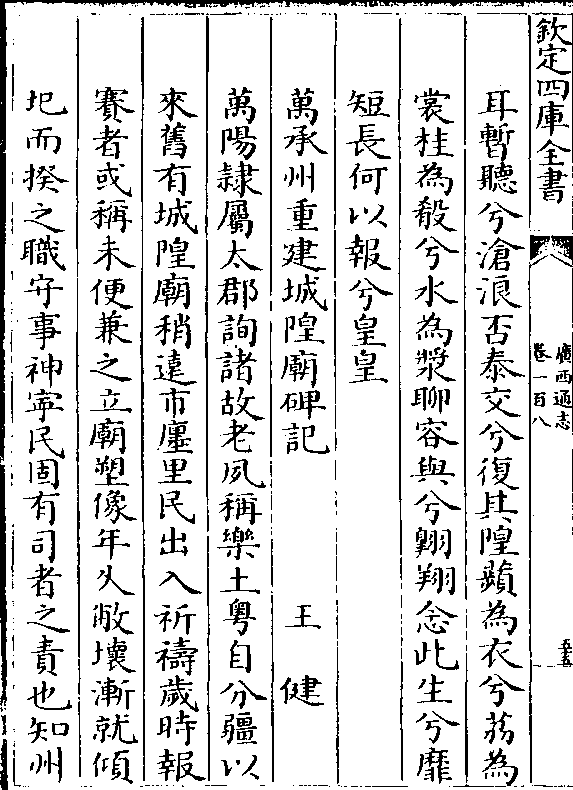 欽定四庫全書
廣西通志
卷一百八
五五
耳暫聽兮滄浪否泰交兮復其隍蘋為衣兮荔為
裳桂為殽兮水為漿聊容與兮翺翔念此生兮靡
短長何以報兮皇皇
萬承州重建城隍廟碑記 王健
萬陽隸屬太郡詢諸故老夙稱樂土粵自分疆以
來舊有城隍廟稍遠市廛里民出入祈禱歲時報
賽者或稱未便兼之立廟塑像年久敝壞漸就傾
圯而揆之職守事神寧民固有司者之責也知州